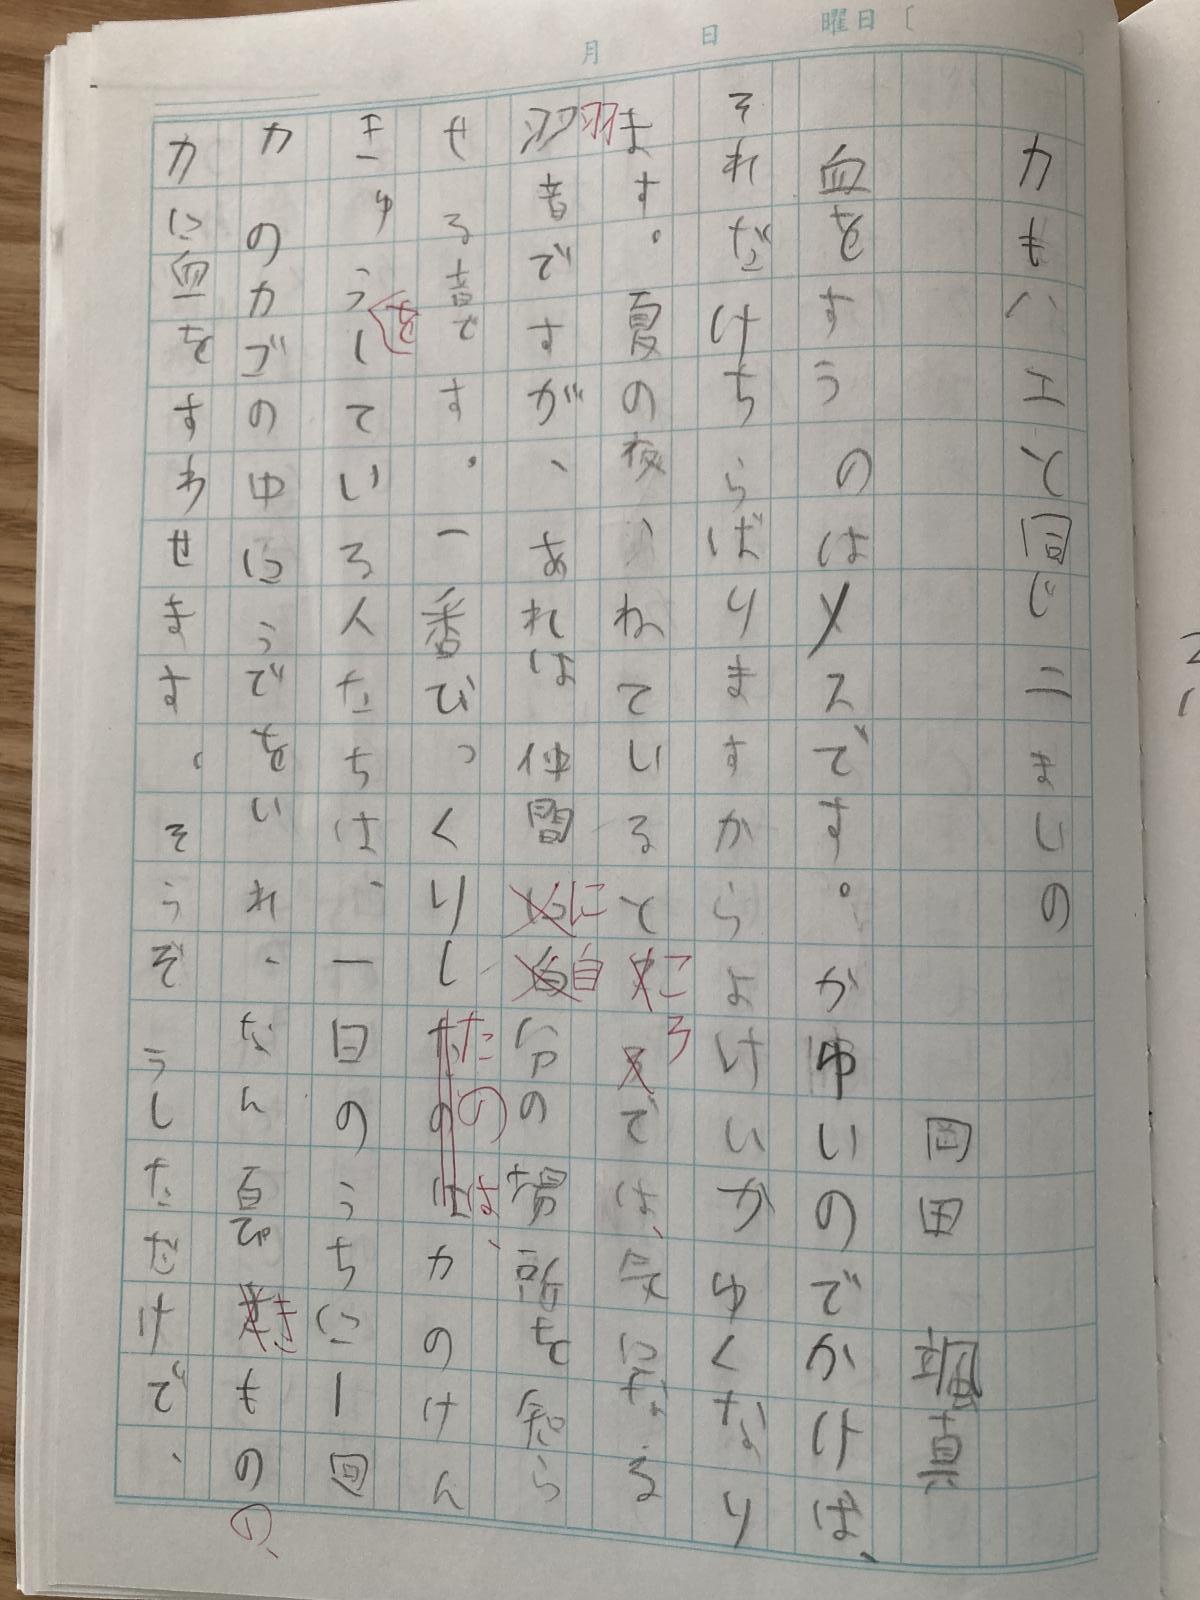 月　日　曜日〔　〕
カもハエと同じ二まいの
岡田 颯真
血をすうのはメスです。かゆいのでかけば、
それだけちらばりますからよけいかゆくなり
ます。夏の夜、ねているところでは、気になる
羽音ですが、あれは仲間に自分の場所を知ら
せる音です。一番びっくりしたのは、カのけん
きゅうをしている人たちは、一日のうちに一回
カのカゴの中にうでをいれ、なん百ぴきものの、
カに血をすわせます。そうぞうしただけで、